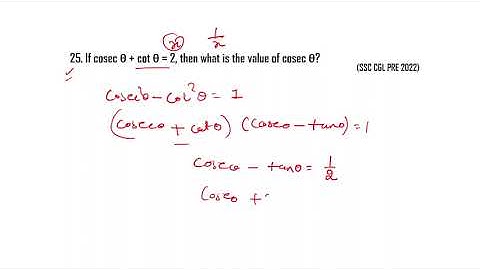 x 1/x
25. If cosec θ + cot θ = 2, then what is the value of cosec θ?
(SSC CGL PRE 2022)
cosec²θ - cot²θ = 1
(cosecθ + cotθ) (cosecθ - tanθ) = 1
cosecθ - tanθ = 1/2
cosecθ +